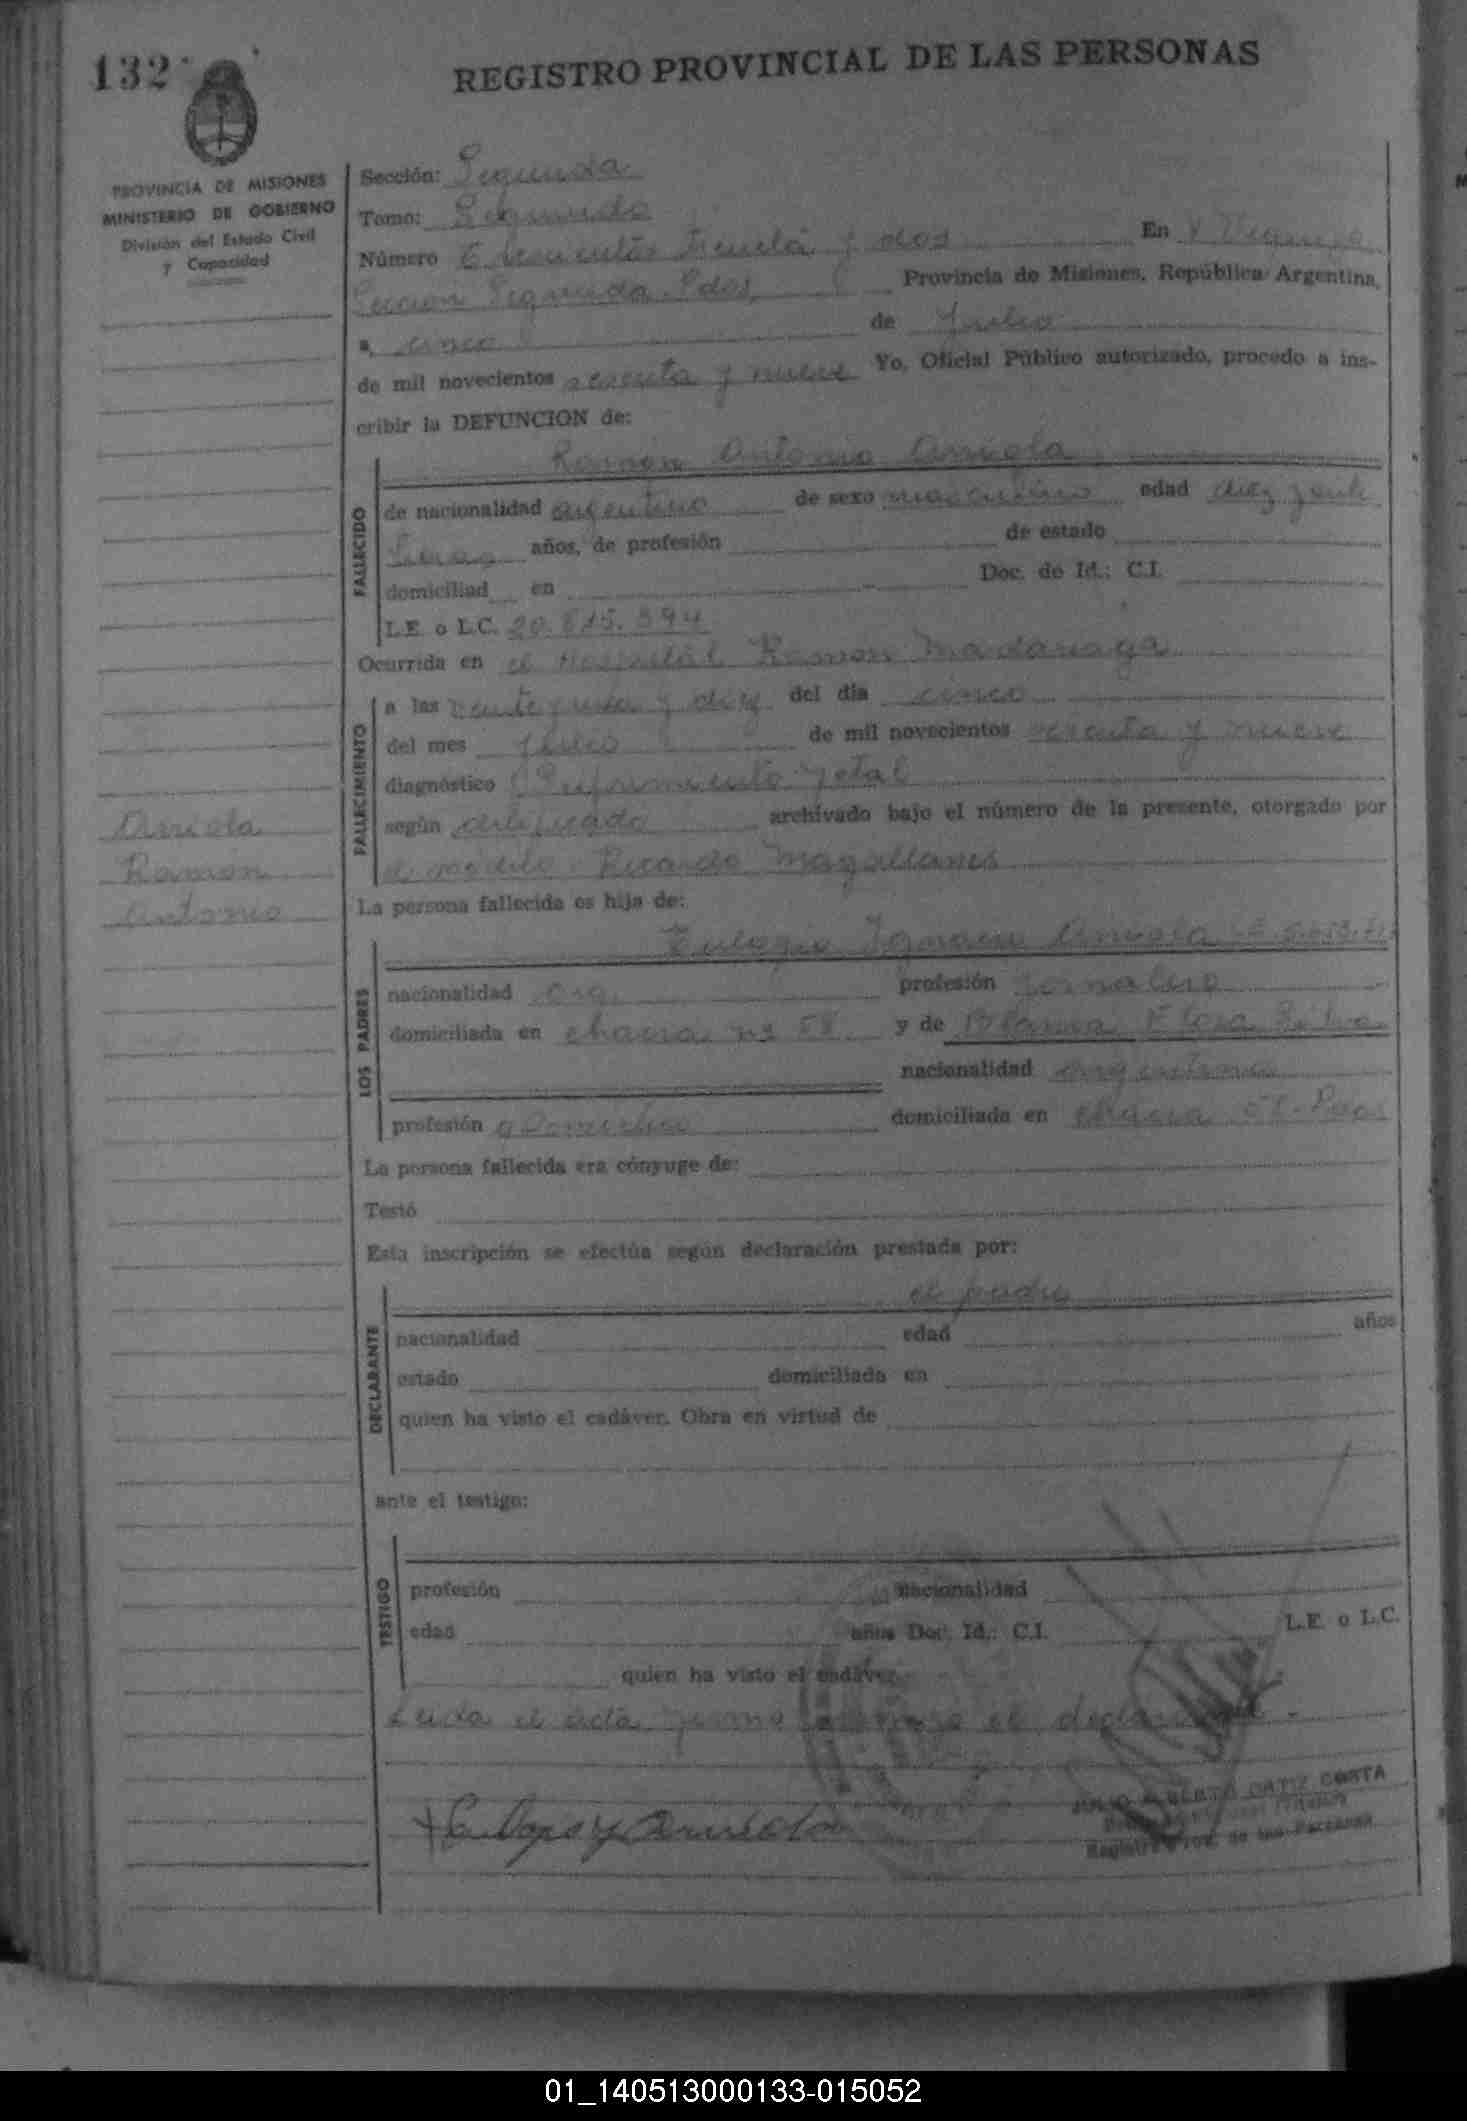 132
REGISTRO PROVINCIAL DE LAS PERSONAS
PROVINCIA DE MISIONES
MINISTERIO DE GOBIERNO
División del Estado Civil
y Capacidad
Sección: Segunda
Tomo: Segundo
Número treinta y dos En
Sección Segunda Pdas Provincia de Misiones, República Argentina,
a, cinco de
de mil novecientos sesenta y nueve Yo, Oficial Público autorizado, procedo a ins-
cribir la DEFUNCION de:
Ramón Antonio Arriola
FALLECIDO
de nacionalidad argentino de sexo masculino edad diez y
años, de profesión de estado
domiciliad en Doc. de Id.: C.I.
L.E. o L.C. 20.815.394
Ocurrida en el Hospital Ramon Madariaga
FALLECIMIENTO
a las y diez del día cinco
del mes de mil novecientos sesenta y nueve
diagnóstico Sufrimiento fetal
según certificado archivado bajo el número de la presente, otorgado por
el médico Ricardo Magallanes
Arriola
Ramón
Antonio
La persona fallecida es hija de:
Eulogio Ignacio Arriola
LOS PADRES
nacionalidad arg. profesión Jornalero
domiciliada en chacra nº 58 y de Blanca Flora Silva
nacionalidad argentina
profesión domiciliada en chacra 58 - Pdas
La persona fallecida era cónyuge de:
Testó
Esta inscripción se efectúa según declaración prestada por:
el padre
DECLARANTE
nacionalidad edad años
estado domiciliada en
quien ha visto el cadáver. Obra en virtud de
ante el testigo:
TESTIGO
profesión nacionalidad
edad años Doc. Id.: C.I. L.E. o L.C.
quien ha visto el cadáver.
Leida el acta firma el declarante.
Arriola
JULIO ALBERTO ORTIZ COSTA
Registro Prov. de las Personas
01_140513000133-015052